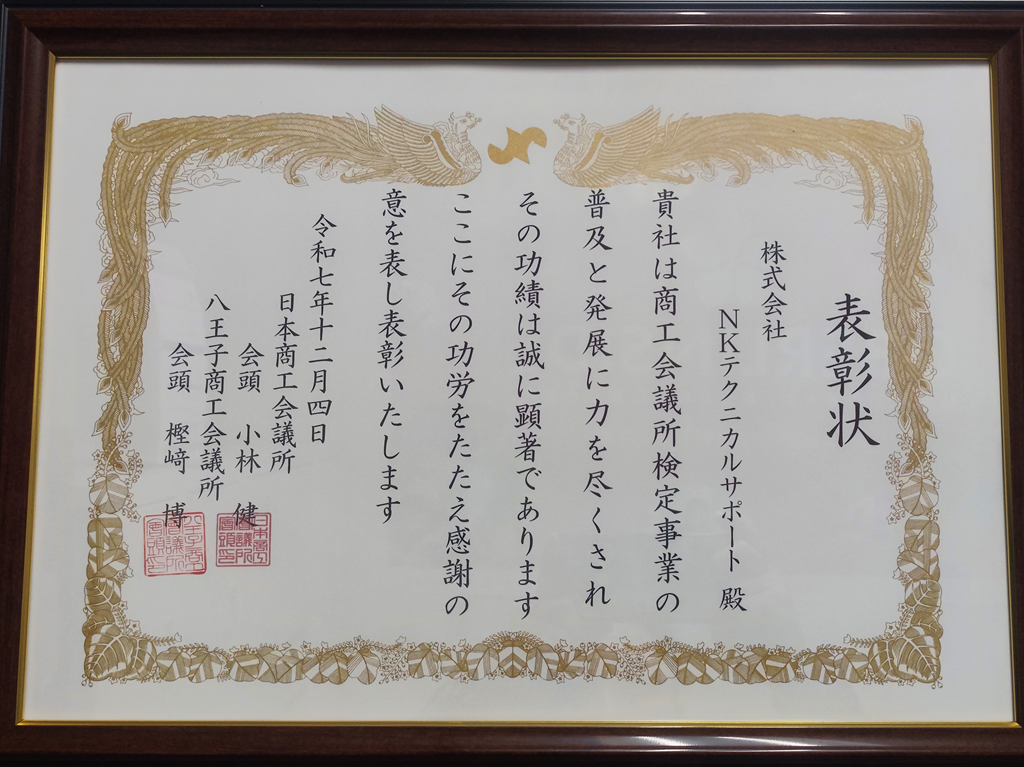 表彰状
株式会社
NKテクニカルサポート 殿
貴社は商工会議所検定事業の
普及と発展に力を尽くされ
その功績は誠に顕著であります
ここにその功労をたたえ感謝の
意を表し表彰いたします
令和七年十二月四日
日本商工会議所
会頭 小林 健
八王子商工会議所
会頭 樫﨑 博